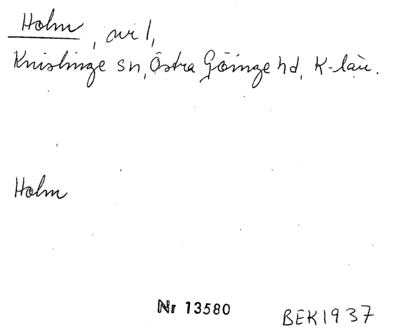 Holm, nr 1,
Knislinge sn, Östra Göinge hd, K-län.
Holm
Nr 13580
BEK1937